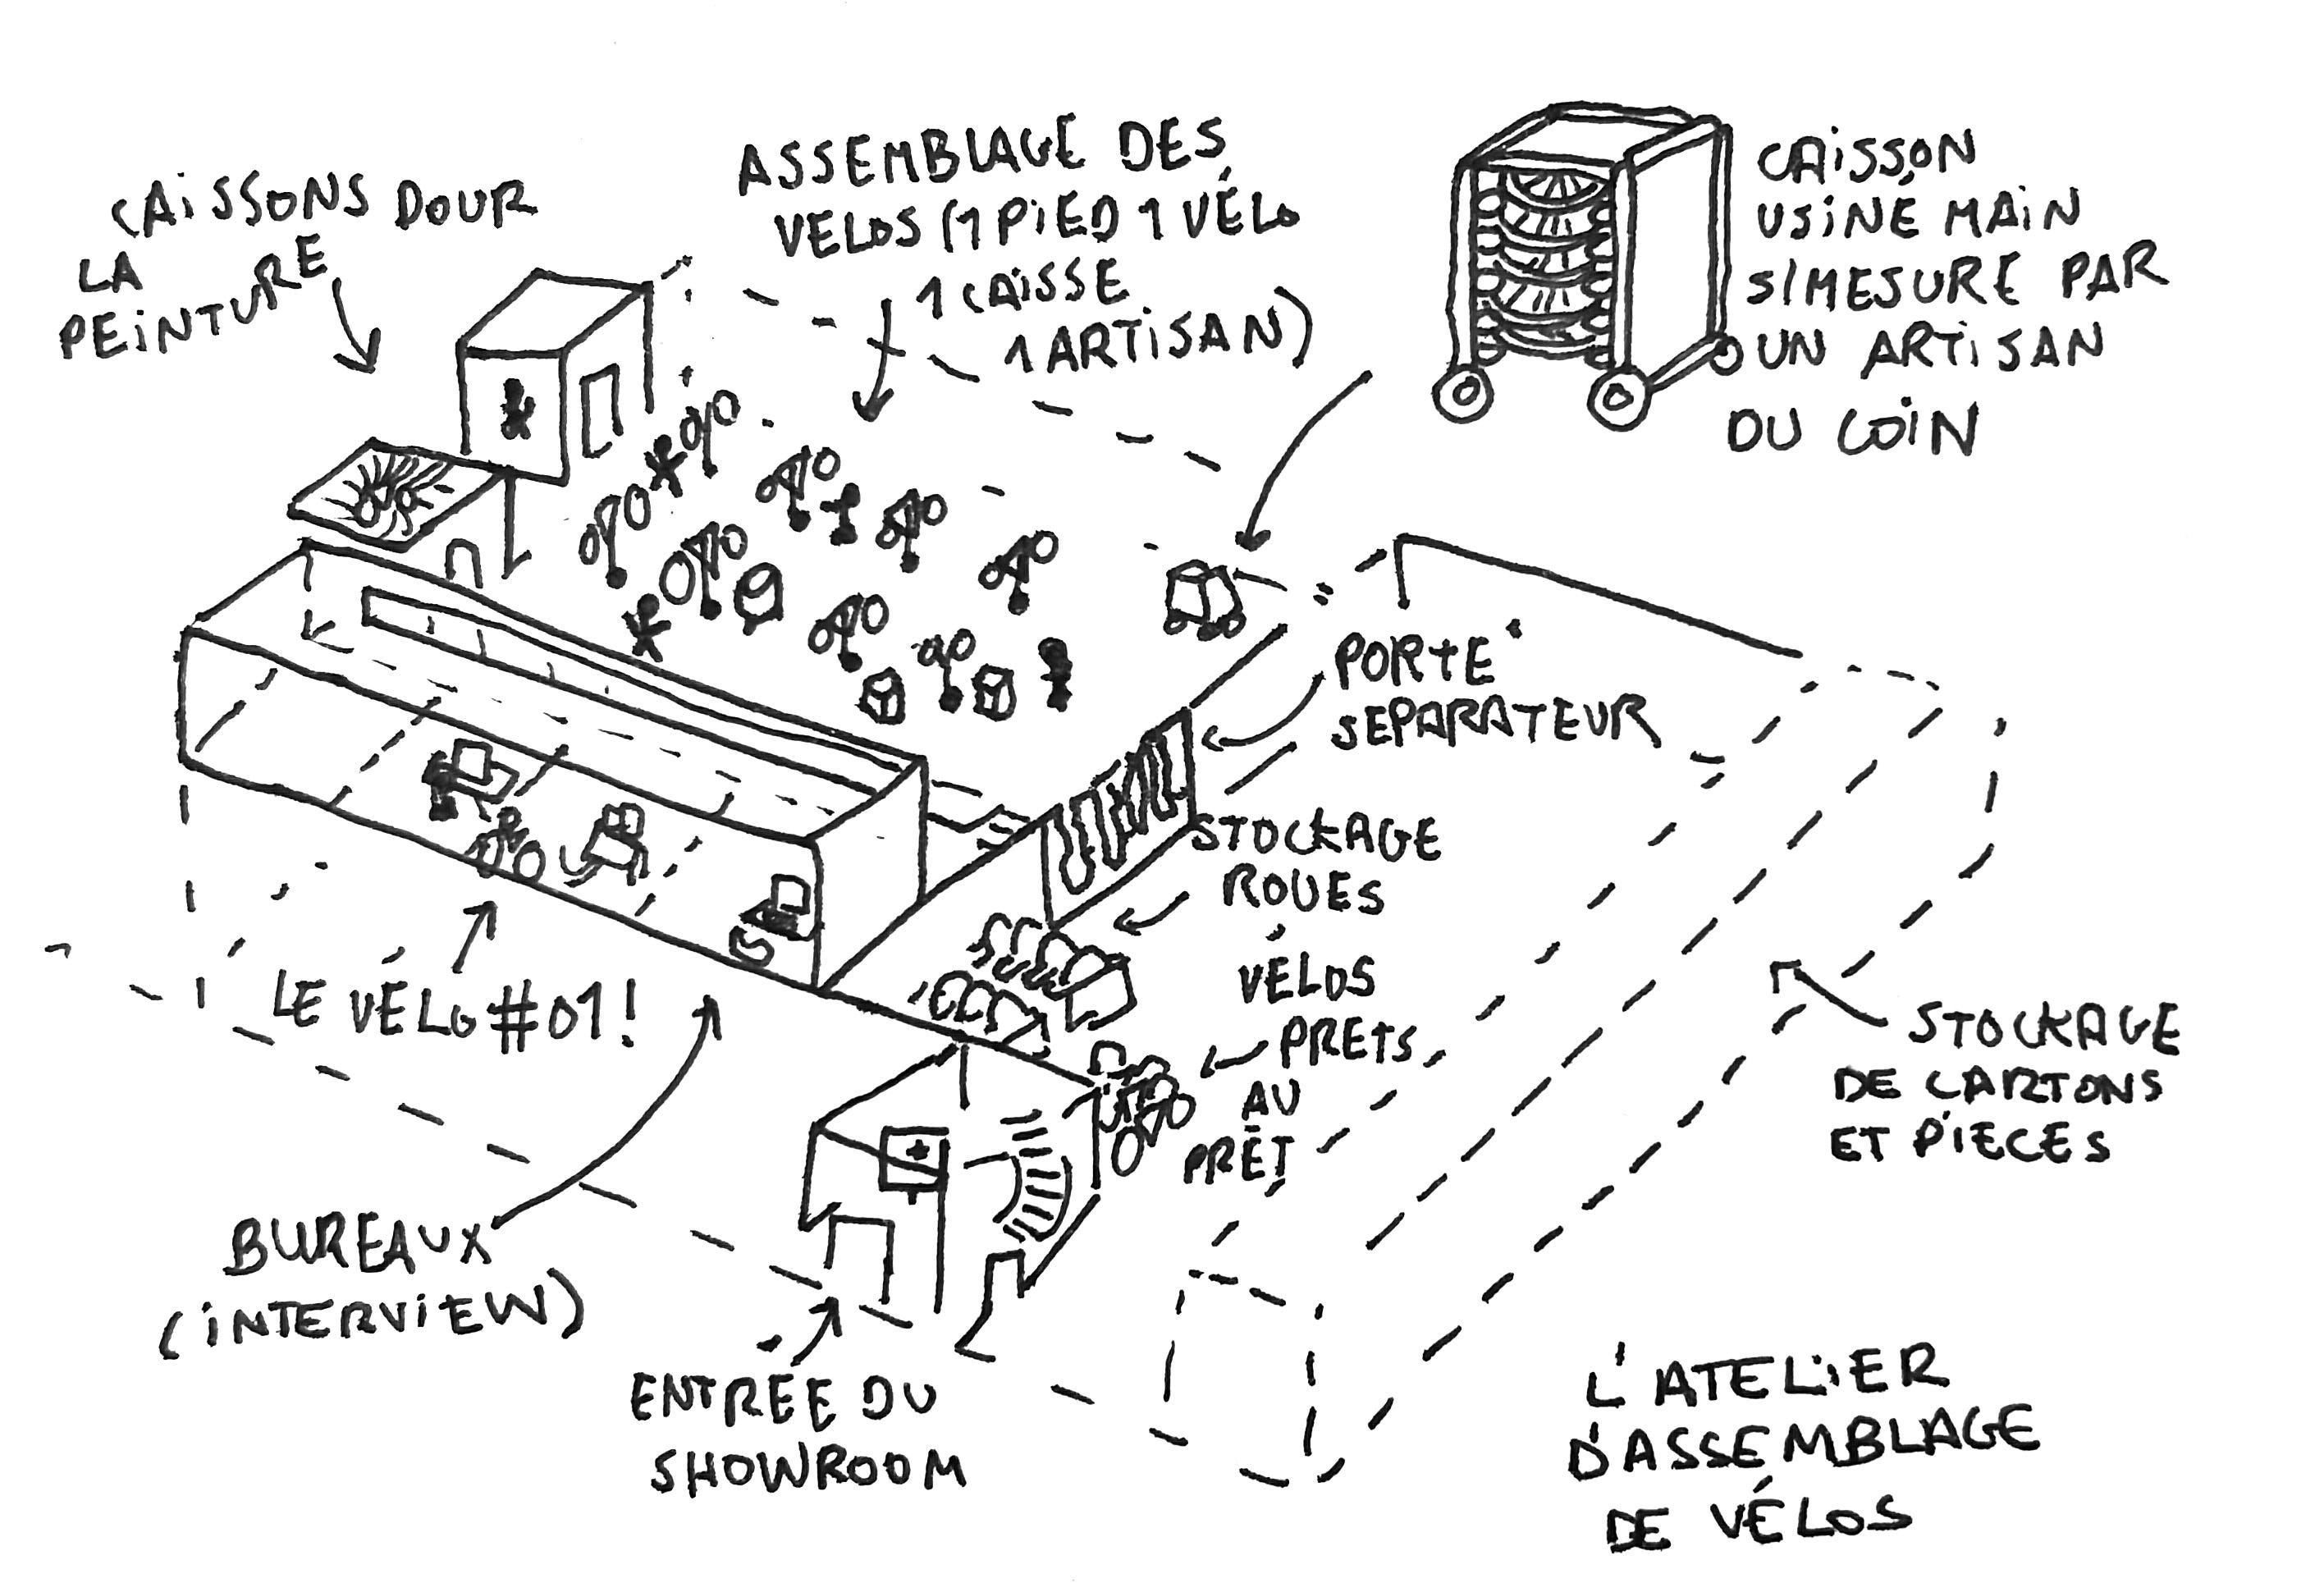 CAISSONS POUR
LA
PEINTURE
ASSEMBLAGE DES
VELOS (1 PIED 1 VÉLO
1 CAISSE
1 ARTISAN)
CAISSON
USINÉ MAIN
S/MESURE PAR
UN ARTISAN
DU COIN
PORTE
SEPARATEUR
STOCKAGE
ROUES
VÉLOS
PRETS
AU
PRÊT
STOCKAGE
DE CARTONS
ET PIÈCES
LE VÉLO #01!
BUREAUX
(INTERVIEW)
ENTRÉE DU
SHOWROOM
L'ATELIER
D'ASSEMBLAGE
DE VÉLOS